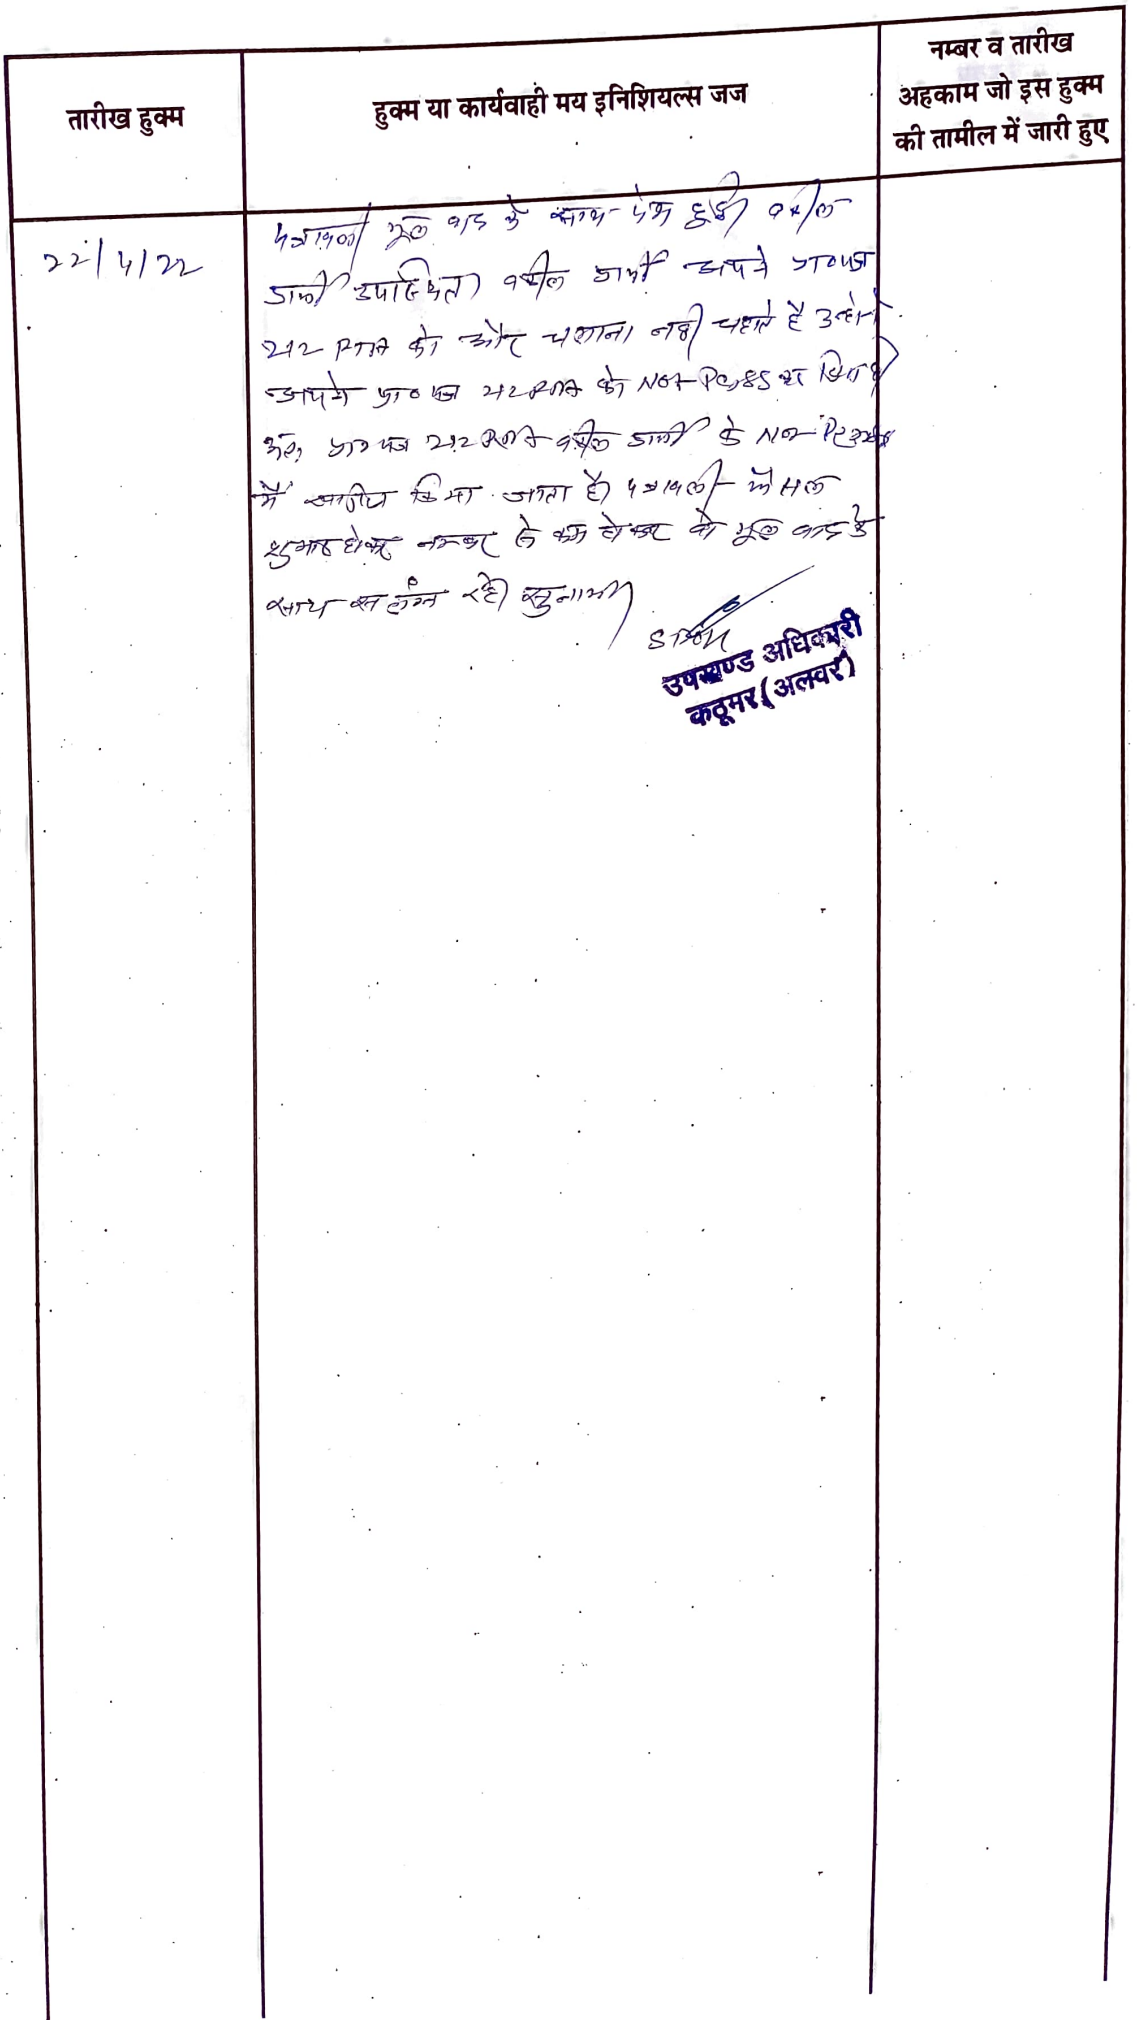 तारीख हुक्म
हुक्म या कार्यवाही मय इनिशियल्स जज
नम्बर व तारीख
अहकाम जो इस हुक्म
की तामील में जारी हुए
22/4/22
पत्रावली मूल वाद के साथ पेश हुई। वकील
प्रार्थी उपस्थित। वकील प्रार्थी अपने प्रा०पत्र
212 RTA को और चलाना नहीं चहाते है उन्होने
अपने प्रा० पत्र 212 RTA को Not Press
अतः प्रा० पत्र 212 RTA वकील प्रार्थी के Not Press
में खारीज किया जाता है। पत्रावली फैसल
शुमार होकर नम्बर से कम होकर के मूल वाद के
साथ सलंग्न रहे।
उपखण्ड अधिकारी
कठूमर (अलवर)